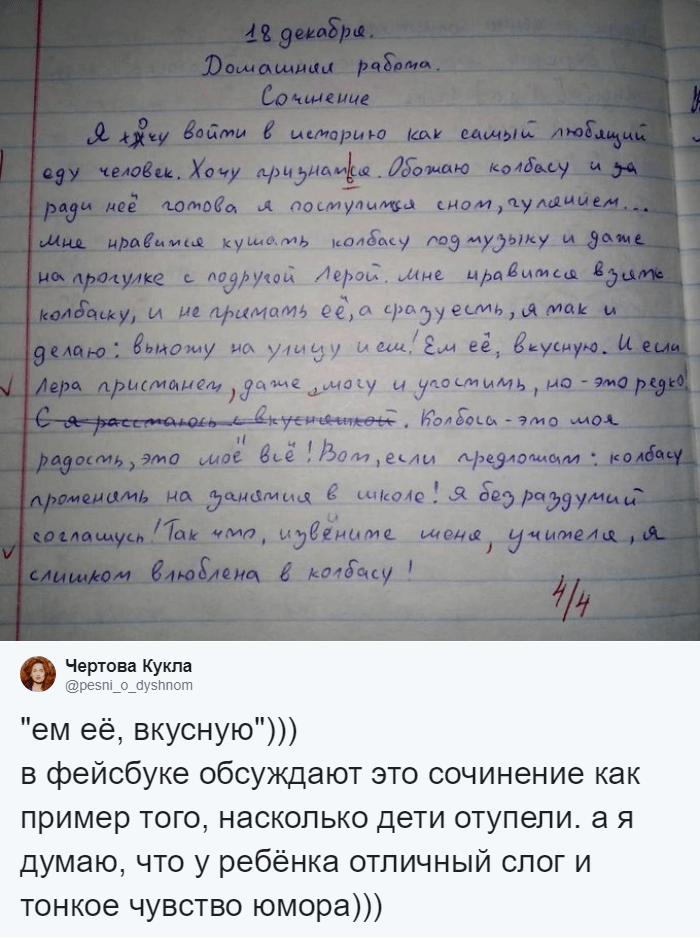 18 декабря.
Домашняя работа.
Сочинение
Я хочу войти в историю как самый любящий
еду человек. Хочу признаться. Обожаю колбасу и за
ради неё готова я поступится сном, гулянием...
Мне нравится кушать колбасу под музыку и даже
на прогулке с подругой Лерой. Мне нравится взять
колбаску, и не прятать её, а сразу есть, я так и
делаю: выхожу на улицу и ем! Ем её, вкусную. И если
Лера пристанет, даже, могу и угостить, но - это редко
С я расстаюсь с вкусняшкой. Колбоса - это моя
радость, это моё всё! Вот, если предложат: колбасу
променять на занятия в школе! Я без раздумий
соглашусь! Так что, извените меня, учителя, я
слишком влюблена в колбасу!
4/4
Чертова Кукла
@pesni_o_dyshnom
"ем её, вкусную")))
в фейсбуке обсуждают это сочинение как
пример того, насколько дети отупели. а я
думаю, что у ребёнка отличный слог и
тонкое чувство юмора)))